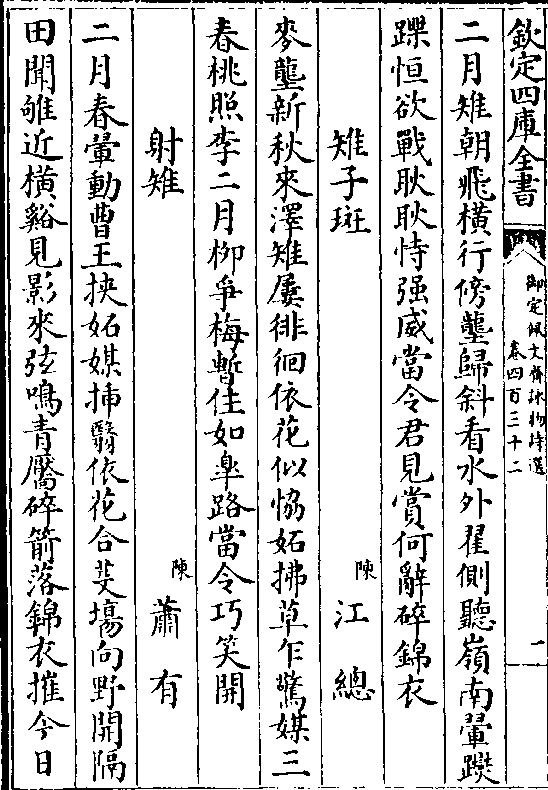 欽定四庫全書
御定佩文齋詠物詩選
卷四百三十二
二月雉朝飛橫行傍壟歸斜看水外翟側聽嶺南翬躞
蹀恒欲戰耿耿恃强威當令君見賞何辭碎錦衣
雉子斑
陳 江總
麥壟新秋來澤雉屢徘徊依花似恊妬拂草乍驚媒三
春桃照李二月柳爭梅暫住如臯路當令巧笑開
射雉
陳 蕭有
二月春翬動曹王挾妬媒插翳依花合芟塲向野開隔
田聞雊近橫谿見影來弦鳴青靨碎箭落錦衣摧今日